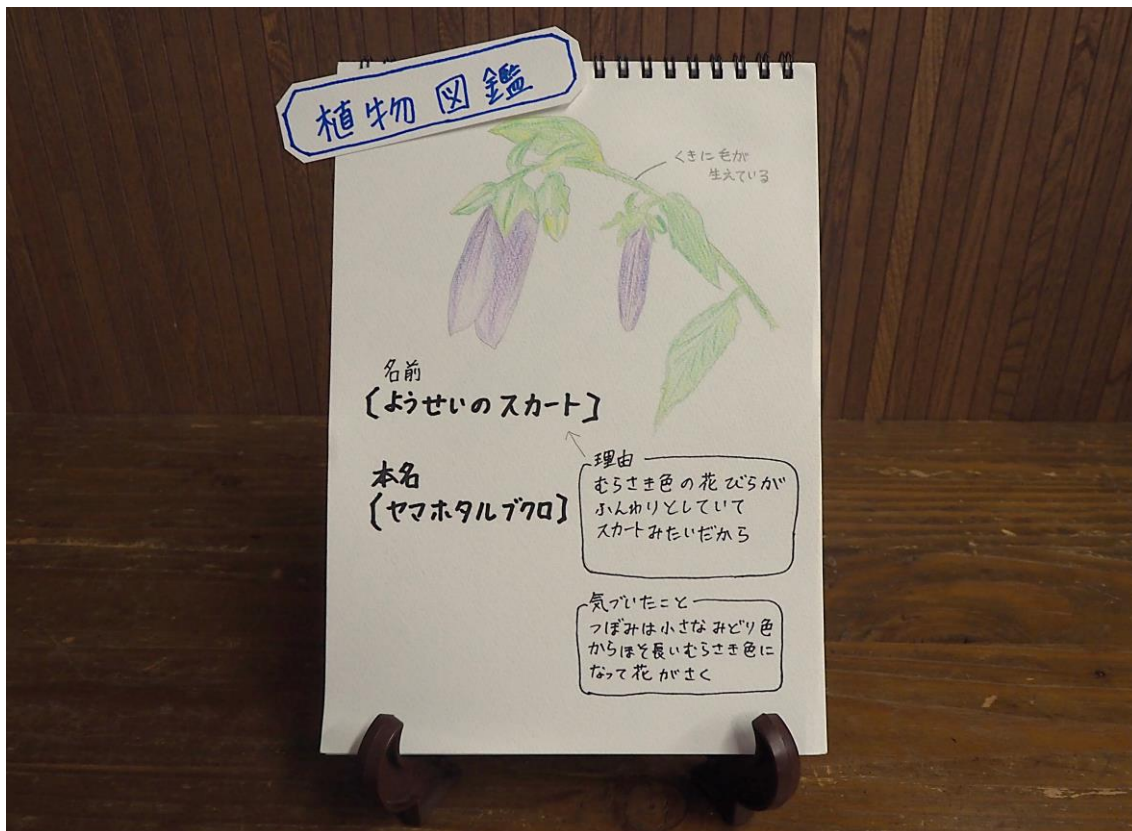 植物図鑑
くきに毛が
生えている
名前
〔ようせいのスカート〕
本名
〔ヤマホタルブクロ〕
理由
むらさき色の花びらが
ふんわりとしていて
スカートみたいだから
気づいたこと
つぼみは小さなみどり色
からほそ長いむらさき色に
なって花がさく